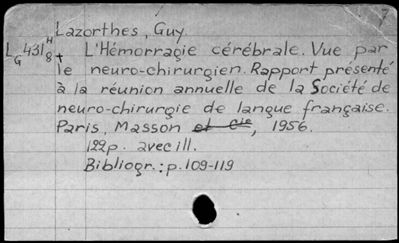 Lazorthes, Guy.
LG431H8+ L'Hémorragie cérébrale. Vue par
le neuro-chirurgien. Rapport présenté
à la réunion annuelle de la Société de
neuro-chirurgie de langue française.
Paris, Masson et Cie, 1956.
122p. avec ill.
Bibliogr.: p.109-119